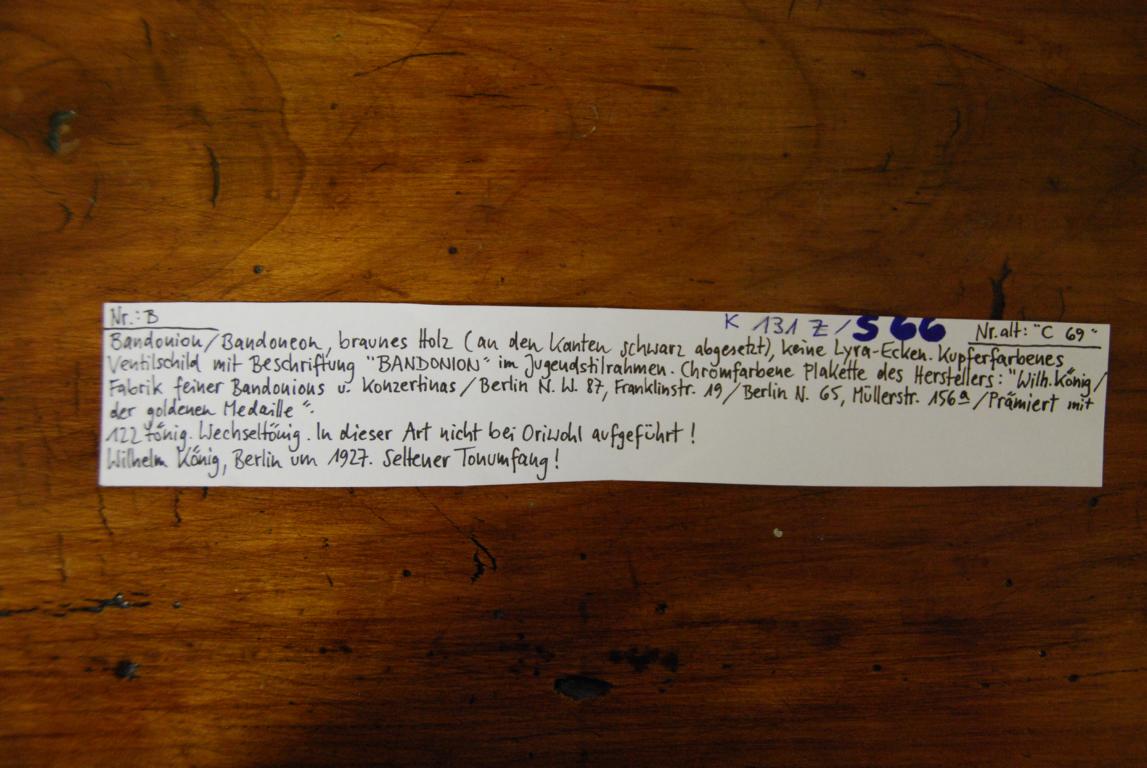 Nr.: B K 131 Z / S 66 Nr. alt: "C 69"
Bandonion/Bandoneon, braunes Holz (an den Kanten schwarz abgesetzt), keine Lyra-Ecken. Kupferfarbenes
Ventilschild mit Beschriftung "BANDONION" im Jugendstilrahmen. Chromfarbene Plakette des Herstellers: "Wilh. König/
Fabrik feiner Bandonions u. Konzertinas / Berlin N. W. 87, Franklinstr. 19 / Berlin N. 65, Müllerstr. 156a / Prämiert mit
der goldenen Medaille".
122 tönig. Wechseltönig. In dieser Art nicht bei Oriwohl aufgeführt!
Wilhelm König, Berlin um 1927. Seltener Tonumfang!